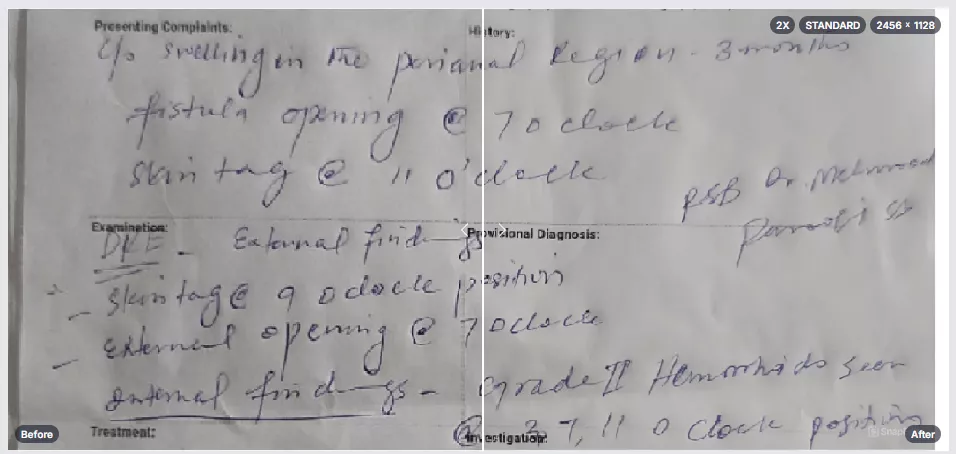 2X STANDARD 2456 × 1128
Presenting Complaints: History:
C/o swelling in the perianal Region - 3 months
fistula opening @ 7 o clock
Skin tag @ 11 o'clock
Dr. Mehmood
Examination: Provisional Diagnosis:
DRE - External findings
- Skin tag @ 9 o clock position
- external opening @ 7 o clock
internal findings - grade II Hemorrhoids seen
@ 3, 7, 11 o clock position
Treatment: Investigation:
Before After